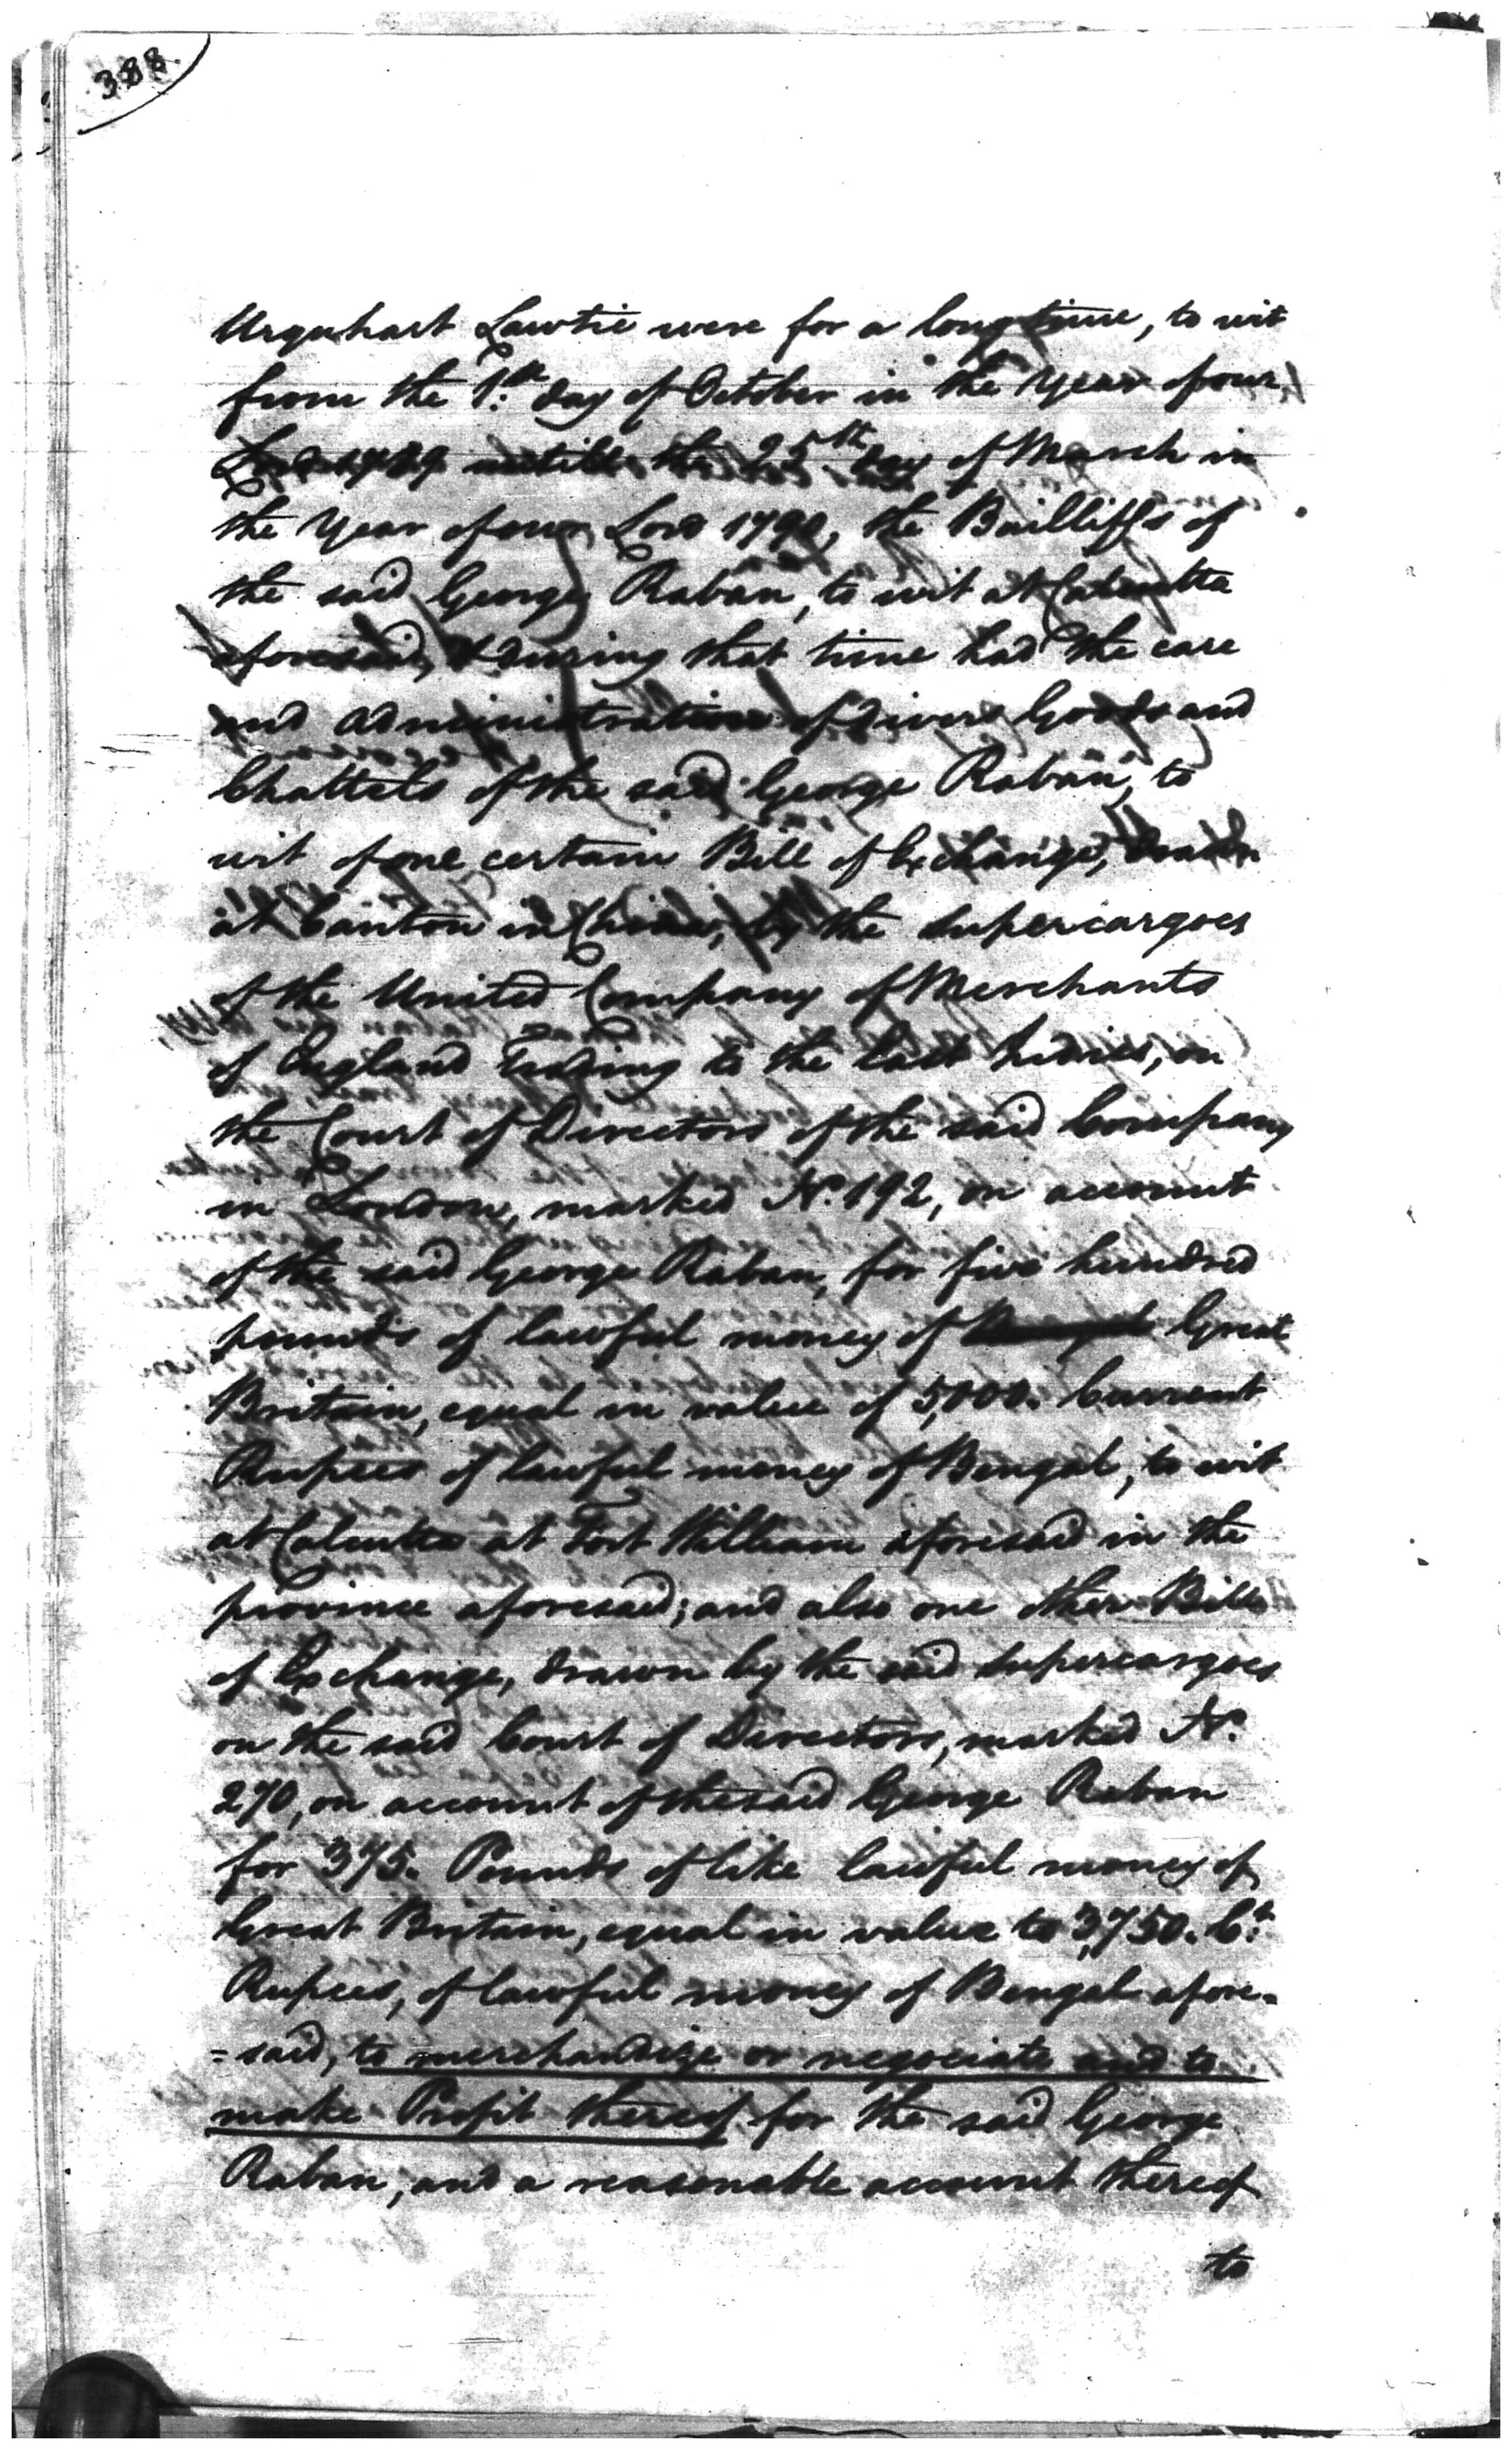 388.
Urquhart Lawtie were for a long time, to wit
from the 1.st day of October in the Year of our
Lord 1789 untill the 25th day of March in
the Year of our Lord 1790, the Bailliffs of
the said George Raban, to wit at Calcutta
aforesaid, & during that time had the care
and administration of divers Goods and
Chattels of the said George Raban, to
wit of one certain Bill of Exchange, drawn
at Canton in China, by the Supercargoes
of the United Company of Merchants
of England Trading to the East Indies, on
the Court of Directors of the said Company
in London, marked No. 192, on account
of the said George Raban, for five hundred
pounds of lawful money of Great
Britain, equal in value of 5,000. Current
Rupees of lawful money of Bengal, to wit
at Calcutta at Fort William aforesaid in the
province aforesaid; and also one other Bill
of Exchange, drawn by the said Supercargoes
on the said Court of Directors, marked No.
270, on account of the said George Raban
for 375. Pounds of like lawful money of
Great Britain, equal in value to 3,750. Ct.
Rupees, of lawful money of Bengal afore=
=said, to merchandize or negociate and to
make Profit thereof for the said George
Raban, and a reasonable account thereof
to